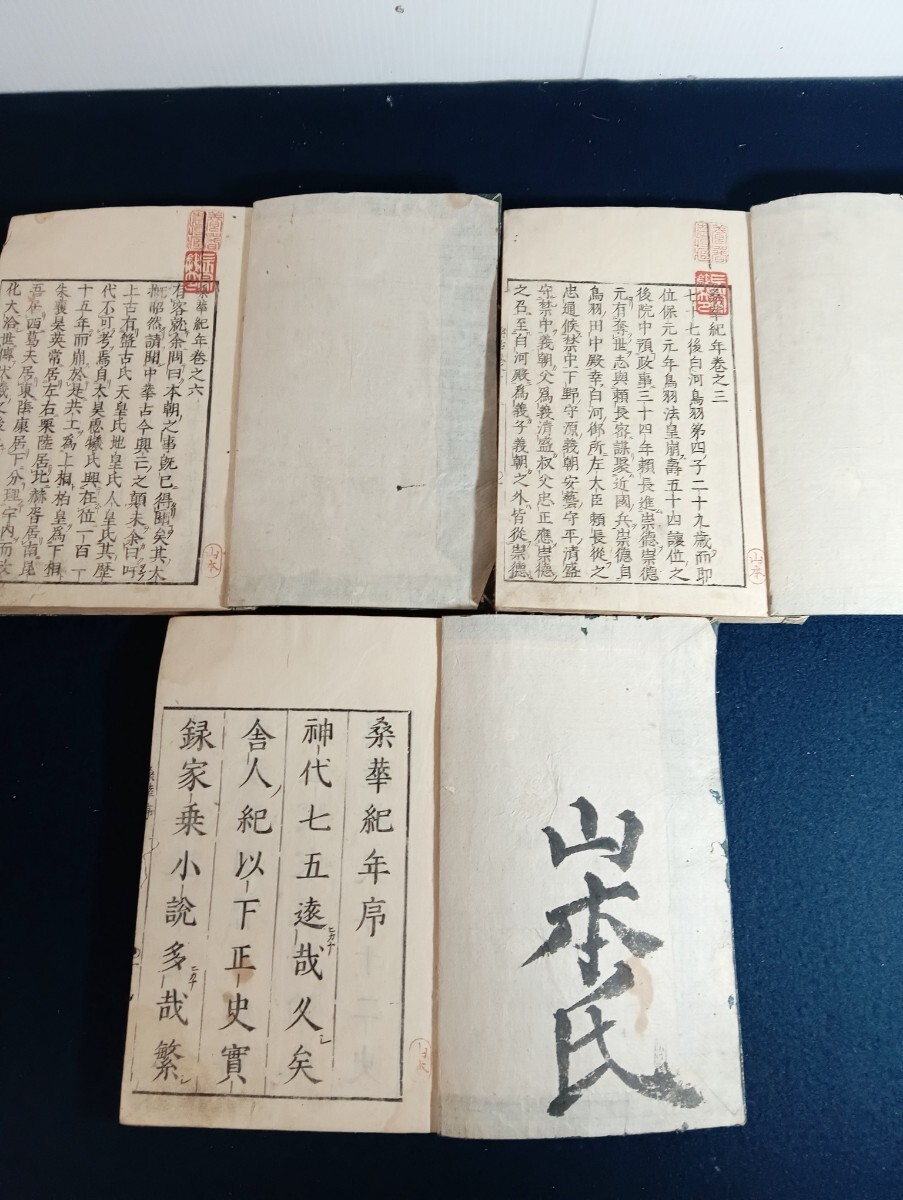 桑華紀年卷之三
七十七後白河鳥羽第四子二十九歲而即
位保元元年鳥羽法皇崩壽五十四讓位之
後院中預政事三十四年賴長進崇德崇德
元有奪世志與賴長密謀聚近國兵崇德自
鳥羽田中殿幸白河御所左大臣賴長從之
忠通候禁中下野守源義朝安藝守平清盛
守禁中義朝父爲義清盛叔父忠正應崇德
之召至白河殿爲義子義朝之外皆從崇德
山本
桑華紀年卷之六
有客就余問曰本朝之事既已得聞矣其本
概昭然請聞中華古今興亡之顛末余曰吁
上古有盤古氏天皇氏地皇氏人皇氏其歷
代不可考焉自太昊庖犧氏興在位一百一
十五年而崩於是共工爲上相柏皇爲下相
朱襄昊英常居左右栗陸居北赫胥居南昆
吾居西葛天居東陰康居下分理宇內而政
化大洽世傳
山本
山本氏
桑華紀年序
神代七五遠哉久矣
舎人紀以下正史實
録家乗小說多哉繁
山本